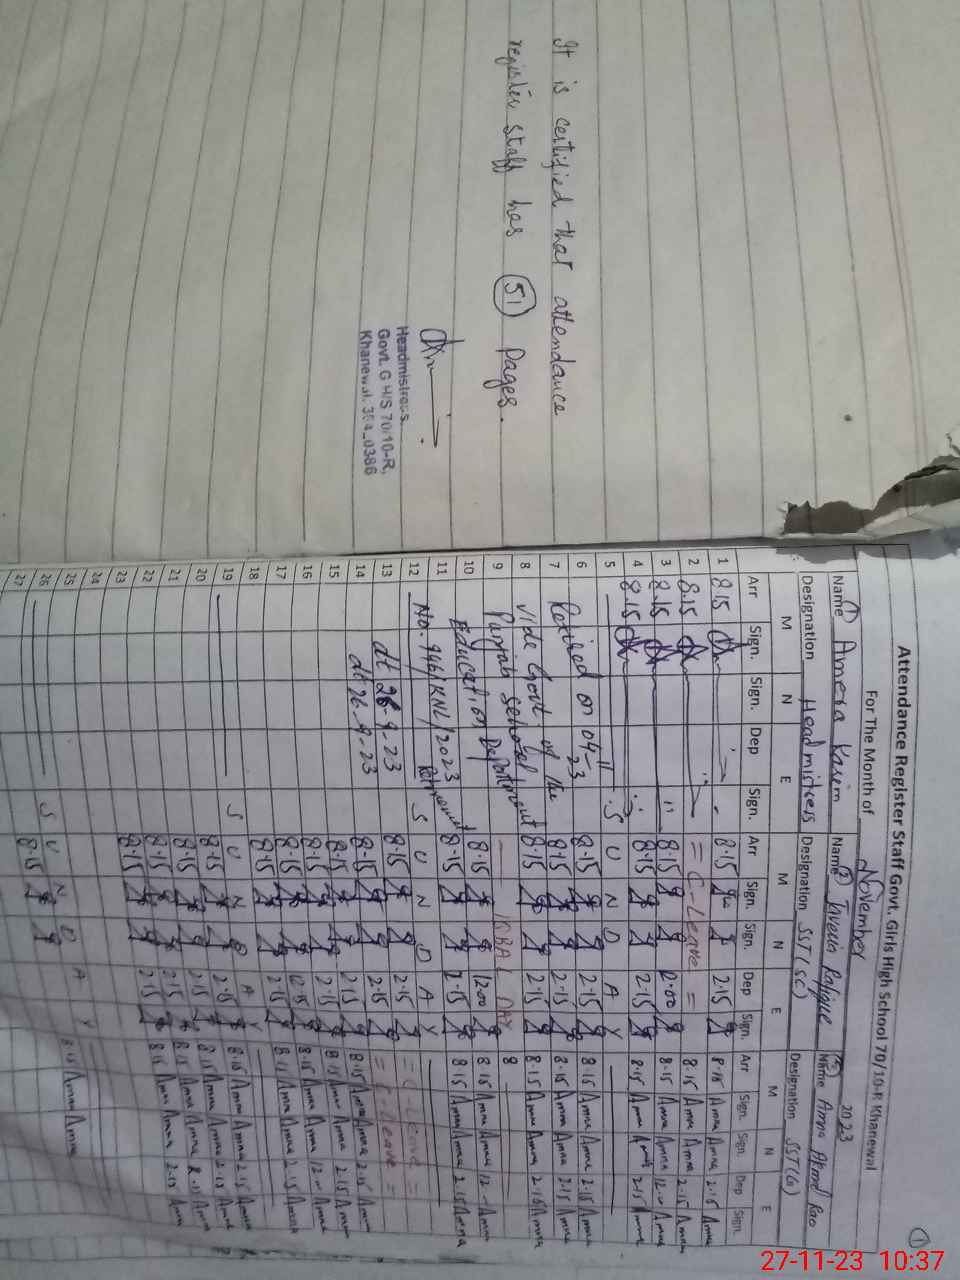 It is certified that attendance
register staff has 51 pages.
Headmistress
Govt. G H/S 70/10-R,
Khanewal. 304_0386
1
Attendance Register Staff Govt. Girls High School 70/10-R Khanewal
For The Month of November 2023
Name 1 Amera Karim Name 2 Name Amna Ahmad Rao
Designation Headmistress Designation SST(SC) Designation SST(G)
M N E M N E M N E
Arr Sign. Sign. Dep Sign. Arr Sign. Sign. Dep Sign. Arr Sign. Sign. Dep Sign.
1 8.15 8.15 2.15 8.15 Amna Amna 2.15 Amna
2 8.15 = C-Leave = 8.15 Amna Amna 2.15 Amna
3 8.15 " 8.15 2.00 8.15 Amna Amna 12 Amna
4 8.15 8.15 2.15 8.15 Amna Amna 2.15 Amna
5 S U N D A Y
6 Retired on 04-11-23 8.15 2.15 8.15 Amna Amna 2.15 Amna
7 8.15 2.15 8.15 Amna Amna 2.15 Amna
8 vide Govt of the 8.15 2.15 8.15 Amna Amna 2.15 Amna
9 Punjab school IQBAL DAY 8
10 Education Department 8.15 12.00 8.15 Amna Amna 12 Amna
11 8.15 2.15 8.15 Amna Amna 2.15 Amna
12 No. 946/KNL/2023 Retirement S U N D A Y
13 dt 26-9-23 8.15 2.15 = C-Leave =
14 dt 26-9-23 8.15 2.15 = C-Leave =
15 8.15 2.15 8.15 Amna Amna 2.15 Amna
16 8.15 2.15 8.15 Amna Amna 2.15 Amna
17 8.15 8.15 Amna Amna 12 Amna
18 8.15 8.15 Amna Amna 2.15 Amna
19 S U N D A Y
20 8.15 2.15 8.15 Amna Amna 2.15 Amna
21 8.15 2.15 8.15 Amna Amna
22 8.15 2.15 8.15 Amna Amna
23 8.15 2.15 8.15 Amna Amna 2.15 Amna
24
25
26 S U N D A Y
27 8.15 8.15 Amna Amna
27-11-23 10:37